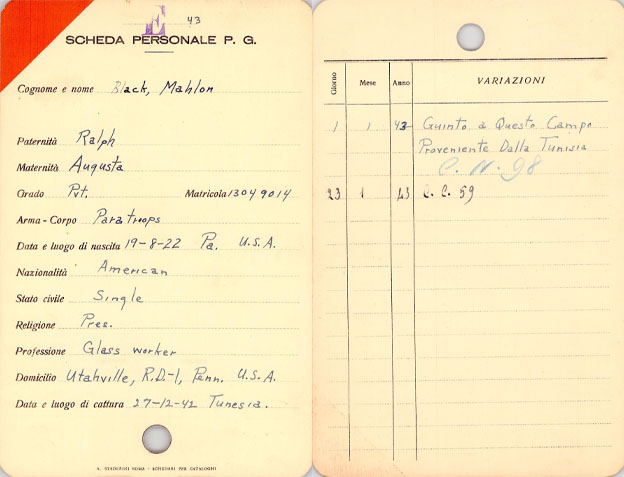 E 43
SCHEDA PERSONALE P. G.
Cognome e nome Black, Mahlon
Paternità Ralph
Maternità Augusta
Grado Pvt. Matricola 13049014
Arma-Corpo Paratroops
Data e luogo di nascita 19-8-22 Pa. U.S.A.
Nazionalità American
Stato civile Single
Religione Pres.
Professione Glass worker
Domicilio Utahville, R.D.-1, Penn. U.S.A.
Data e luogo di cattura 27-12-42 Tunesia.
ROMA - SCHEDARI PER CATALOGHI
Giorno Mese Anno VARIAZIONI
1 1 43 Guinto a Questo Campo
Proveniente Dalla Tunisia
C. N. 98
23 1 43 C. C. 59